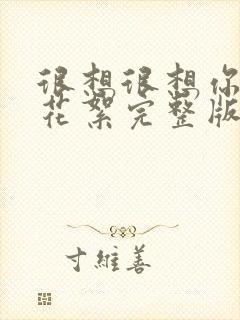 很想很想你
花絮完整版
寸維善